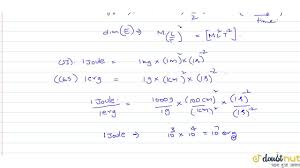 dim(E) → M(L/T)² = [ML²T⁻²]
(SI) 1 Joule = 1kg × (1m)² × (1s)⁻²
(CGS) 1 erg = 1g × (cm)² × (1s)⁻²
1 Joule / 1 erg = 1000g/1g × (100cm)²/(cm)² × (1s)⁻²/(1s)⁻²
1 Joule → 10³ × 10⁴ = 10⁷ erg
doubtnut